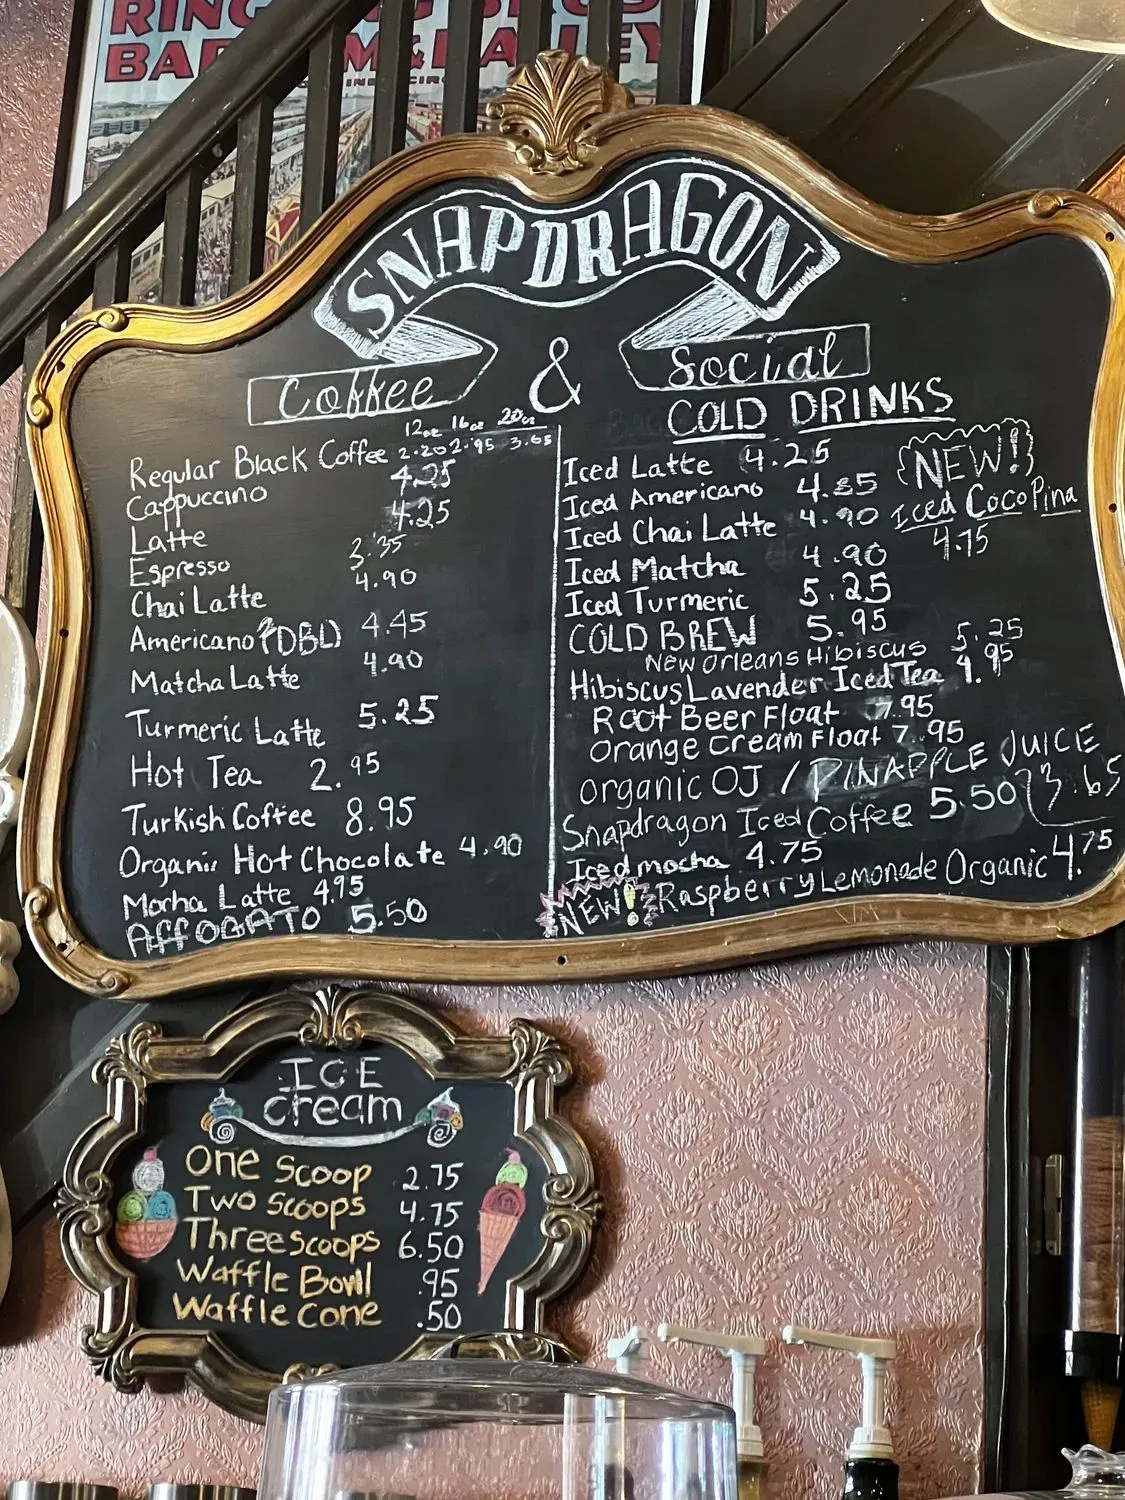 RINGLING BROS
BARNUM & BAILEY
SNAPDRAGON
Coffee & Social
12oz 16oz 20oz
Regular Black Coffee 2.20 2.95 3.65
Cappuccino 4.25
Latte 4.25
Espresso 3.35
Chai Latte 4.90
Americano (DBL) 4.45
Matcha Latte 4.90
Turmeric Latte 5.25
Hot Tea 2.95
Turkish Coffee 8.95
Organic Hot Chocolate 4.90
Mocha Latte 4.95
AFFOGATO 5.50
COLD DRINKS
Iced Latte 4.25
Iced Americano 4.85
Iced Chai Latte 4.90
Iced Matcha 4.90
Iced Turmeric 5.25
COLD BREW 5.95
New Orleans Hibiscus 5.25
Hibiscus Lavender Iced Tea 4.95
Root Beer Float 7.95
Orange Cream Float 7.95
organic OJ / PINAPPLE JUICE 3.65
Snapdragon Iced Coffee 5.50
Iced mocha 4.75
NEW! Raspberry Lemonade Organic 4.75
NEW!
Iced CocoPina
4.75
ICE
cream
One scoop 2.75
Two scoops 4.75
Three scoops 6.50
Waffle Bowl .95
Waffle cone .50